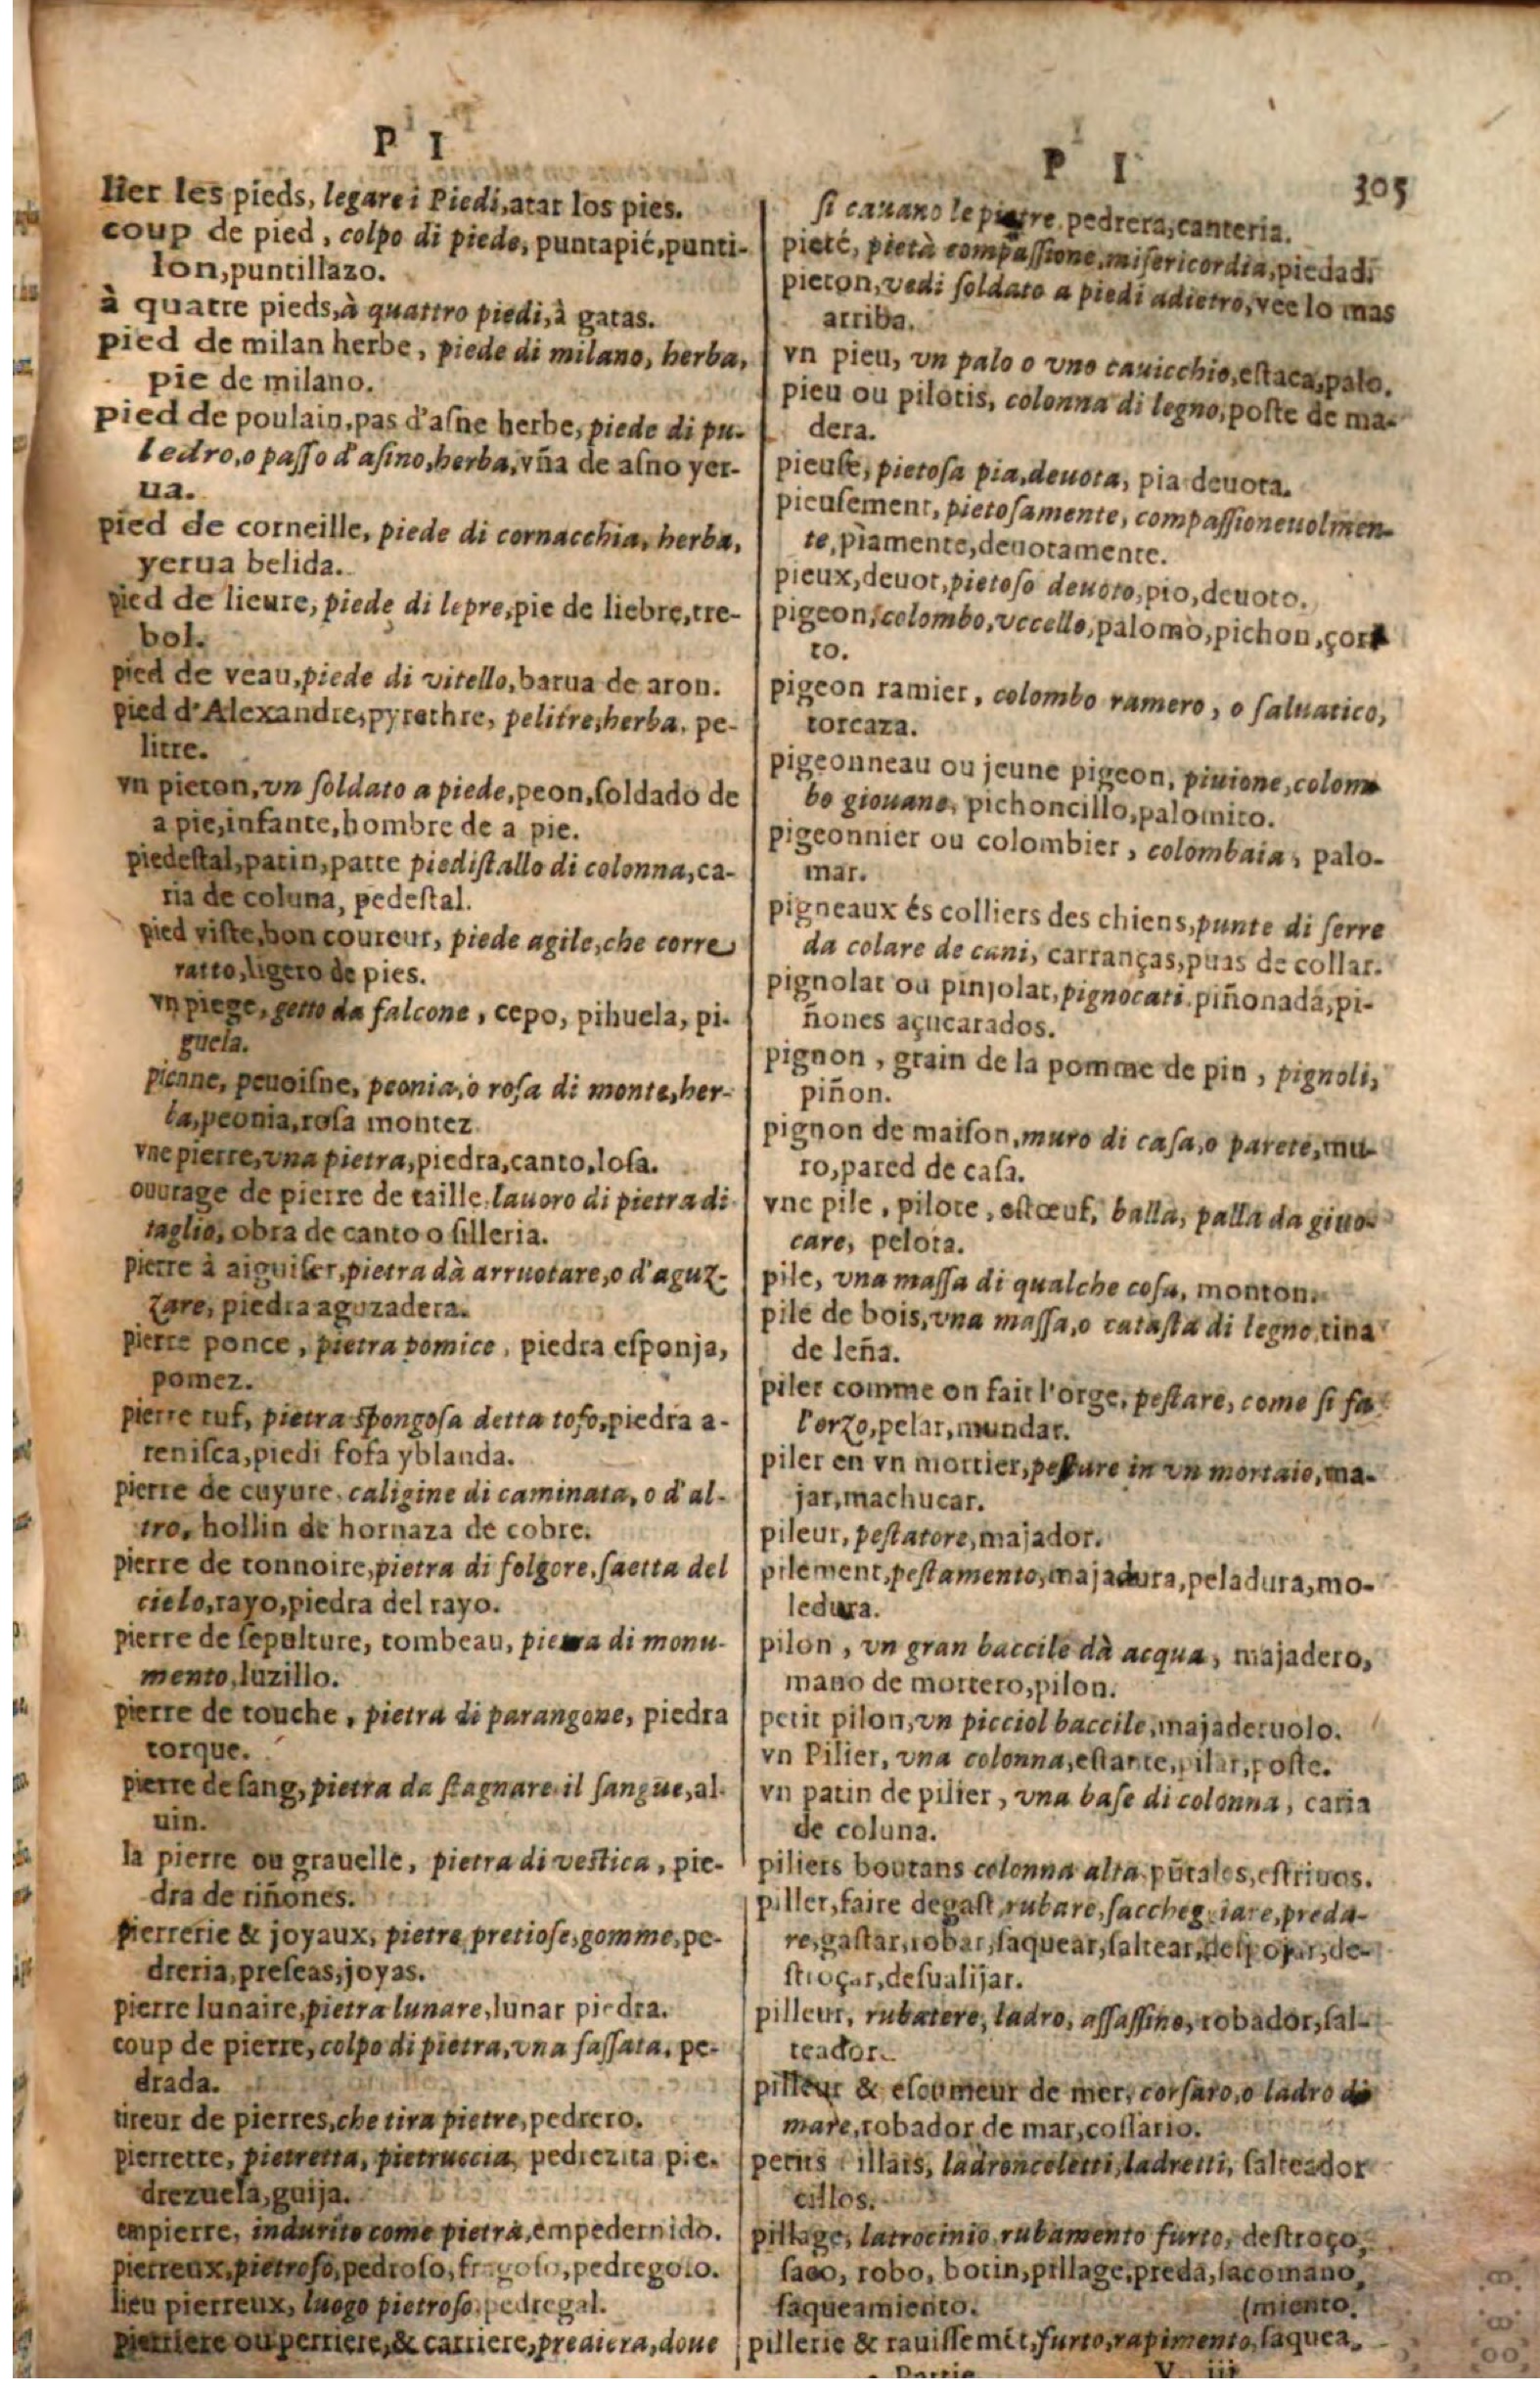 P I
lier les pieds, legare i Piedi, atar los pies.
coup de pied, colpo di piede, puntapié, punti-
lon, puntillazo.
à quatre pieds, à quattro piedi, à gatas.
pied de milan herbe, piede di milano, herba,
pie de milano.
pied de poulain, pas d'asne herbe, piede di pu-
ledro, o passo d'asino, herba, vña de asno yer-
ua.
pied de corneille, piede di cornacchia, herba,
yerua belida.
pied de lieure, piede di lepre, pie de liebre, tre-
bol.
pied de veau, piede di vitello, barua de aron.
pied d'Alexandre, pyrethre, pelitre, herba, pe-
litre.
vn pieton, vn soldato a piede, peon, soldado de
a pie, infante, hombre de a pie.
piedestal, patin, patte piedistallo di colonna, ca-
ria de coluna, pedestal.
pied viste, bon coureur, piede agile, che corre
ratto, ligero de pies.
vn piege, getto da falcone, cepo, pihuela, pi-
guela.
pienne, peuoisne, peonia, o rosa di monte, her-
ba, peonia, rosa montez.
vne pierre, vna pietra, piedra, canto, losa.
ouurage de pierre de taille, lauoro di pietra di
taglio, obra de canto o silleria.
pierre à aiguiser, pietra dà arruotare, o d'aguz-
zare, piedra aguzadera.
pierre ponce, pietra pomice, piedra esponja,
pomez.
pierre tuf, pietra spongosa detta tofo, piedra a-
renisca, piedi fofa yblanda.
pierre de cuyure, caligine di caminata, o d'al-
tro, hollin de hornaza de cobre.
pierre de tonnoire, pietra di folgore, saetta del
cielo, rayo, piedra del rayo.
pierre de sepulture, tombeau, pietra di monu-
mento, luzillo.
pierre de touche, pietra di parangone, piedra
torque.
pierre de sang, pietra da stagnare il sangue, al-
uin.
la pierre ou grauelle, pietra di vestica, pie-
dra de riñones.
pierrerie & joyaux, pietre pretiose, gomme, pe-
dreria, preseas, joyas.
pierre lunaire, pietra lunare, lunar piedra.
coup de pierre, colpo di pietra, vna sassata, pe-
drada.
tireur de pierres, che tira pietre, pedrero.
pierrette, pietretta, pietruccia, pedrezita pie-
drezuela, guija.
empierre, indurito come pietra, empedernido.
pierreux, pietroso, pedroso, fragoso, pedregoso.
lieu pierreux, luogo pietroso, pedregal.
pierriere ou perriere, & carriere, prediera, doue
P I
305
si cauano le pietre, pedrera, canteria.
pieté, pietà compassione, misericordia, piedad.
pieton, vedi soldato a piedi adietro, vee lo mas
arriba.
vn pieu, vn palo o vno cauicchio, estaca, palo.
pieu ou pilotis, colonna di legno, poste de ma-
dera.
pieuse, pietosa pia, deuota, pia deuota.
pieusement, pietosamente, compassioneuolmen-
te, piamente, deuotamente.
pieux, deuot, pietoso deuoto, pio, deuoto.
pigeon, colombo, vccello, palomo, pichon, çori
to.
pigeon ramier, colombo ramero, o saluatico,
torcaza.
pigeonneau ou jeune pigeon, piuione, colom
bo giouane, pichoncillo, palomito.
pigeonnier ou colombier, colombaia, palo-
mar.
pigneaux és colliers des chiens, punte di ferre
da colare de cani, carranças, puas de collar.
pignolat ou pinjolat, pignocati, piñonada, pi-
ñones açucarados.
pignon, grain de la pomme de pin, pignoli,
piñon.
pignon de maison, muro di casa, o parete, mu-
ro, pared de casa.
vne pile, pilote, estœuf, balla, palla da giuo-
care, pelota.
pile, vna massa di qualche cosa, monton.
pile de bois, vna massa, o catasta di legno, tina
de leña.
piler comme on fait l'orge, pestare, come si fa
l'orzo, pelar, mundar.
piler en vn mortier, pestare in vn mortaio, ma-
jar, machucar.
pileur, pestatore, majador.
pilement, pestamento, majadura, peladura, mo-
ledura.
pilon, vn gran baccile dà acqua, majadero,
mano de mortero, pilon.
petit pilon, vn picciol baccile, majaderuolo.
vn Pilier, vna colonna, estante, pilar, poste.
vn patin de pilier, vna base di colonna, caria
de coluna.
piliers boutans colonna alta, pũtales, estriuos.
piller, faire degast, rubare, saccheggiare, preda-
re, gastar, robar, saquear, saltear, despojar, de-
stroçar, desualijar.
pilleur, rubatore, ladro, assassino, robador, sal-
teador.
pilleur & escumeur de mer, corsaro, o ladro di
mare, robador de mar, cossario.
petits illars, ladronceletti, ladretti, salteador
cillos.
pillage, latrocinio, rubamento furto, destroço,
saco, robo, botin, pillage, preda, sacomano,
saqueamiento. (miento.
pillerie & rauissemẽt, furto, rapimento, saquea-
Partie V iij